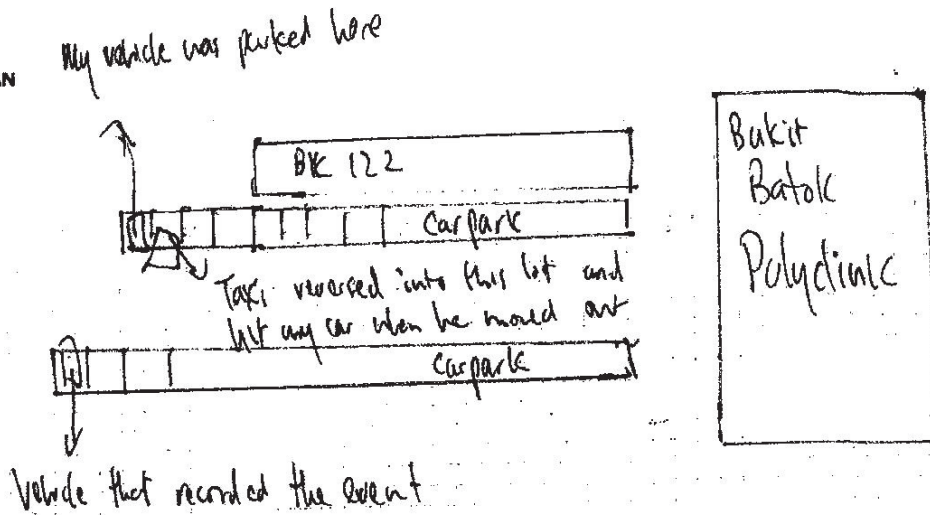 AN
My vehicle was parked here
BK 122
carpark
Taxi reversed into this lot and
hit my car when he moved out
carpark
Vehicle that recorded the event
Bukit
Batok
Polyclinic